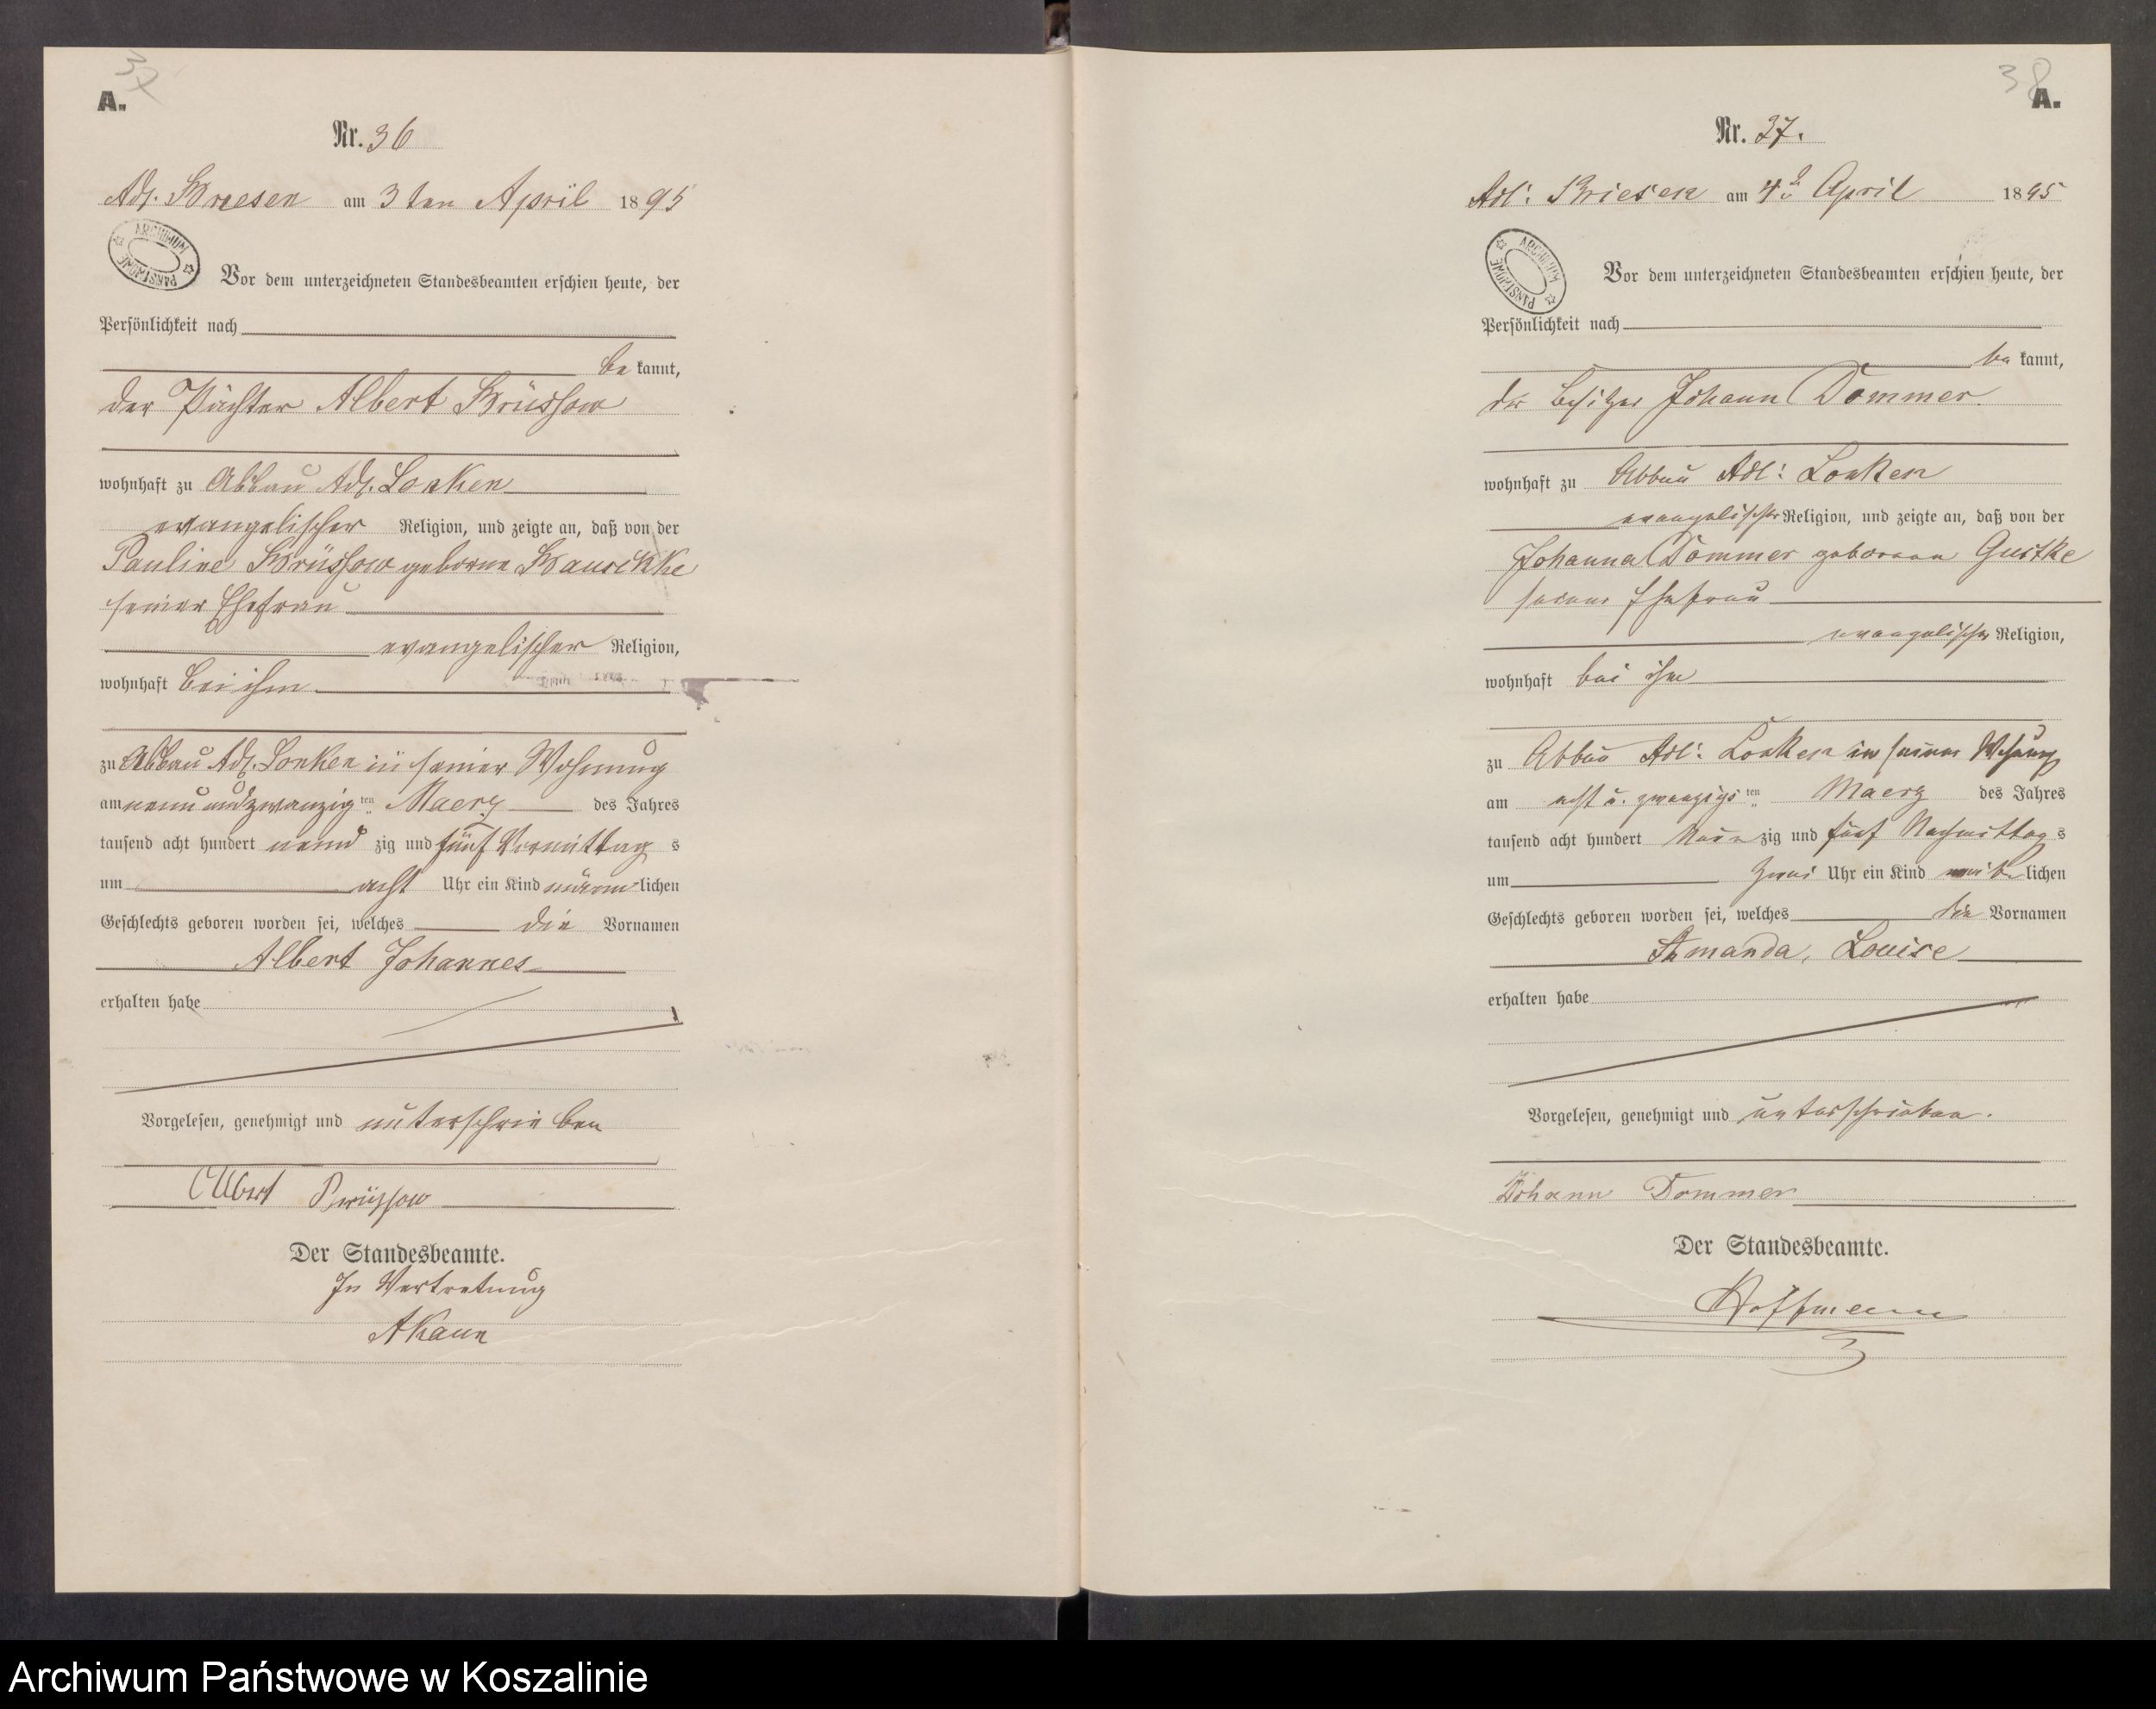 37
A.
Nr. 36
Adl. Briesen am 3ten April 1895
ARCHIWUM PAŃSTWOWE
Vor dem unterzeichneten Standesbeamten erschien heute, der
Persönlichkeit nach
be kannt,
der Pächter Albert Brüssow
wohnhaft zu Abbau Adl. Lonken
evangelischer Religion, und zeigte an, daß von der
Pauline Brüssow geborne
seiner Ehefrau
evangelischer Religion,
wohnhaft bei ihm
zu Abbau Adl. Lonken in seiner Wohnung
am neunundzwanzig ten Maerz des Jahres
tausend acht hundert neun zig und fünf Vormittag s
um acht Uhr ein Kind männ lichen
Geschlechts geboren worden sei, welches die Vornamen
Albert Johannes
erhalten habe
Vorgelesen, genehmigt und unterschrieben
Albert Brüssow
Der Standesbeamte.
In Vertretung
AKaun
38
A.
Nr. 37.
Adl: Briesen am 4 April 1895
ARCHIWUM PAŃSTWOWE
Vor dem unterzeichneten Standesbeamten erschien heute, der
Persönlichkeit nach
be kannt,
der Besitzer Johann Dommer.
wohnhaft zu Abbau Adl: Lonken
evangelischer Religion, und zeigte an, daß von der
Johanna Dommer geborene Gustke
seiner Ehefrau
evangelischer Religion,
wohnhaft bei ihm
zu Abbau Adl: Lonken in seiner Wohnung
am acht u. zwanzigs ten Maerz des Jahres
tausend acht hundert Neun zig und fünf Nachmittag s
um zwei Uhr ein Kind weib lichen
Geschlechts geboren worden sei, welches die Vornamen
Amanda, Louise
erhalten habe
Vorgelesen, genehmigt und unterschrieben.
Johann Dommer
Der Standesbeamte.
Hoffmann
Archiwum Państwowe w Koszalinie